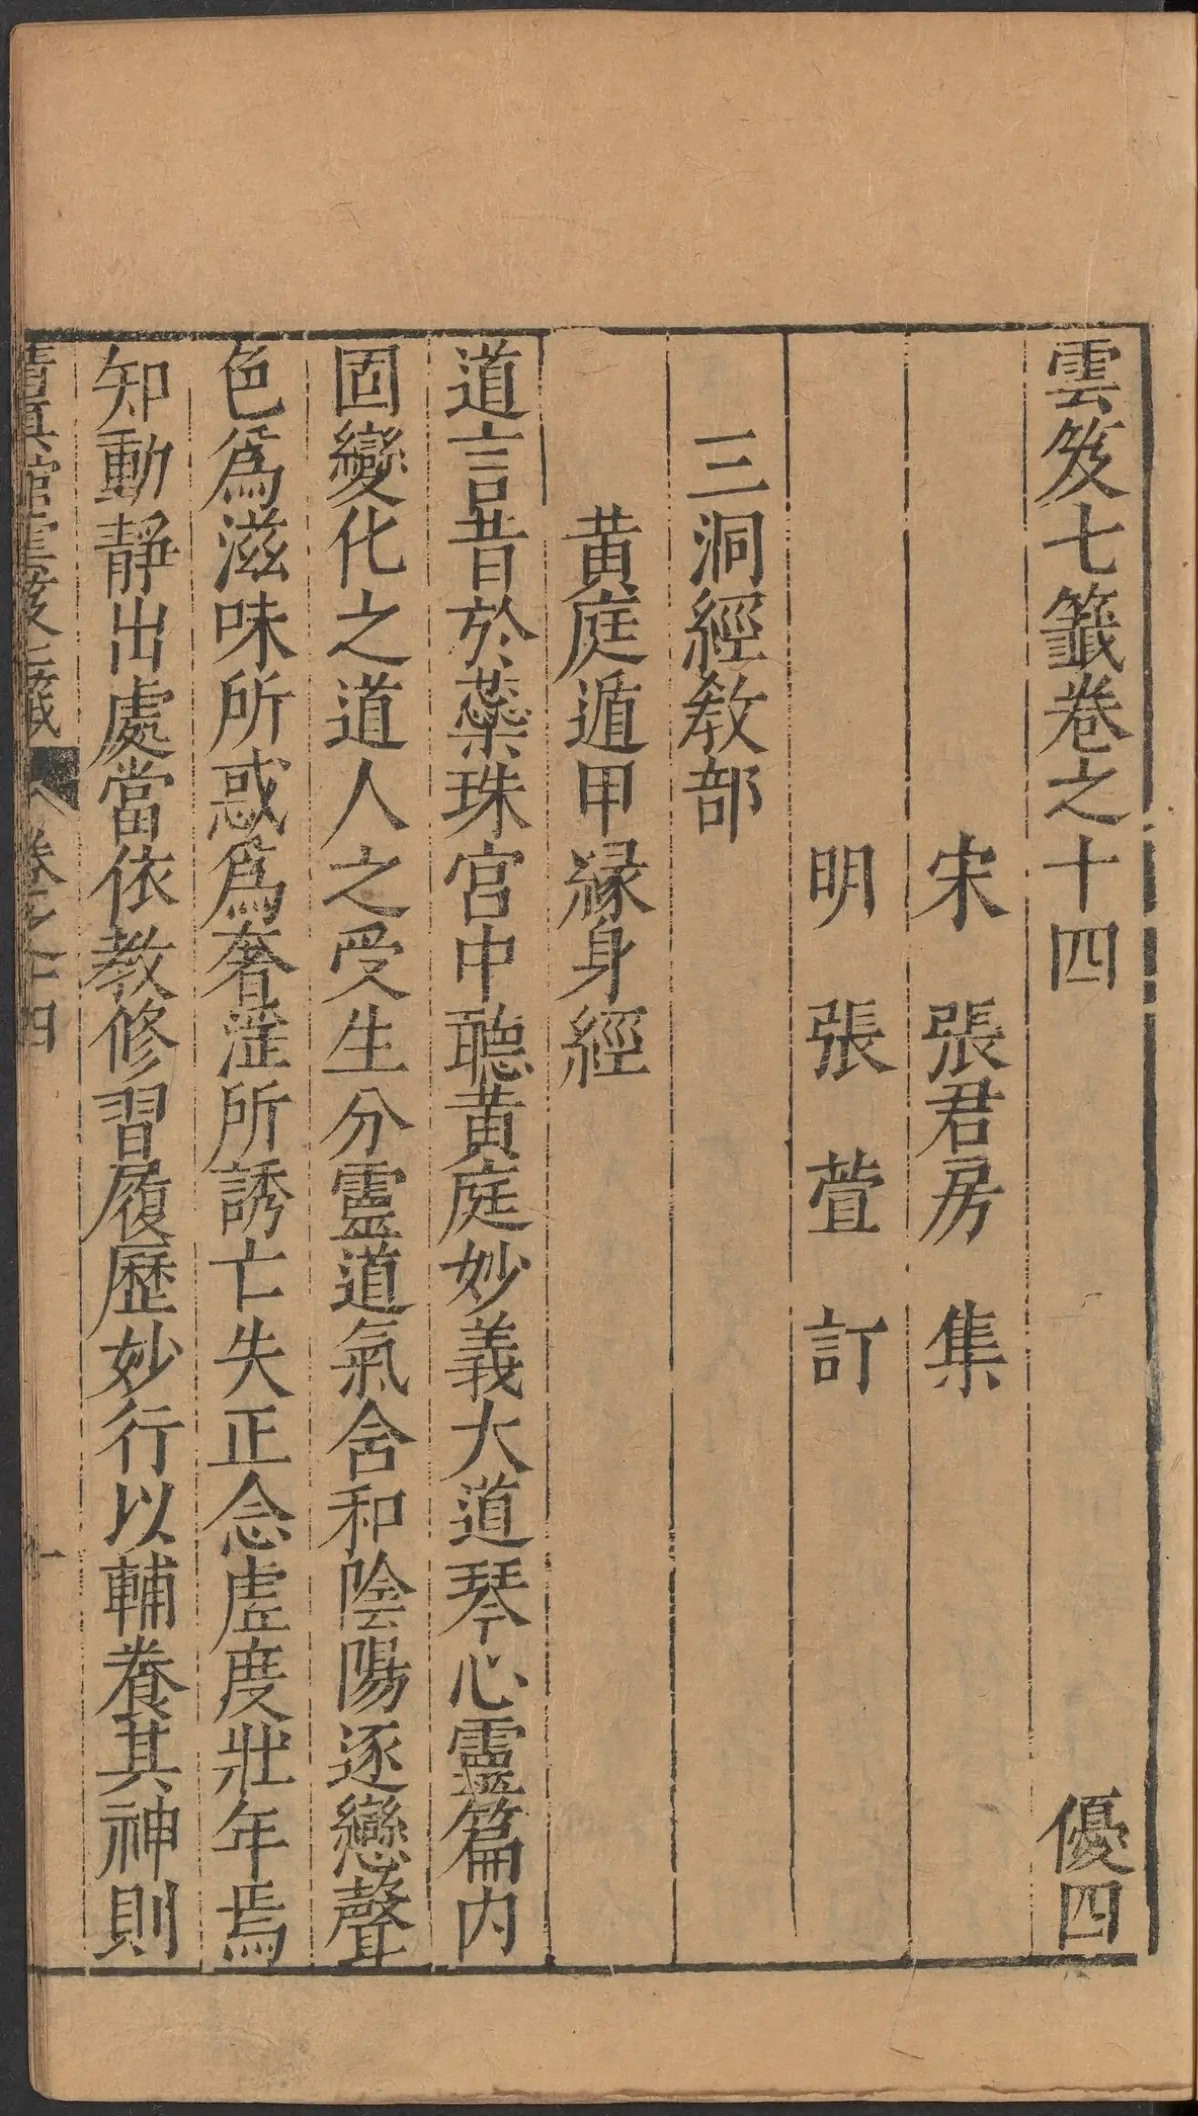 雲笈七籤卷之十四 優四
宋 張君房 集
明 張 萱 訂
三洞經教部
黃庭遁甲緣身經
道言昔於蘂珠宮中聽黃庭妙義大道琴心靈篇內
固變化之道人之受生分靈道氣含和陰陽逐戀聲
色爲滋味所惑爲奢淫所誘亡失正念虛度壯年焉
知動靜出處當依教修習履歷妙行以輔養其神則
清真館雲笈七籤 卷之十四 一